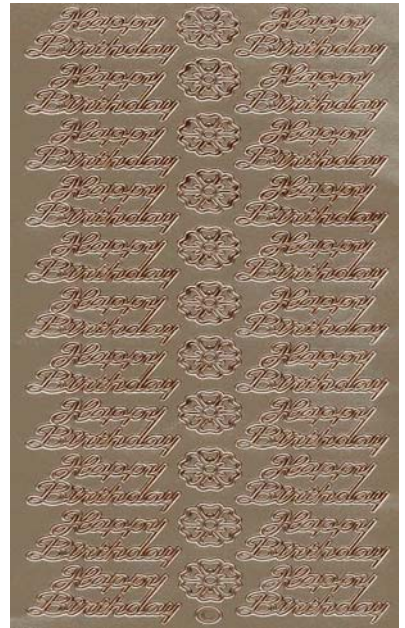 Happy
Birthday
Happy
Birthday
Happy
Birthday
Happy
Birthday
Happy
Birthday
Happy
Birthday
Happy
Birthday
Happy
Birthday
Happy
Birthday
Happy
Birthday
Happy
Birthday
Happy
Birthday
Happy
Birthday
Happy
Birthday
Happy
Birthday
Happy
Birthday
Happy
Birthday
Happy
Birthday
Happy
Birthday
Happy
Birthday
Happy
Birthday
Happy
Birthday